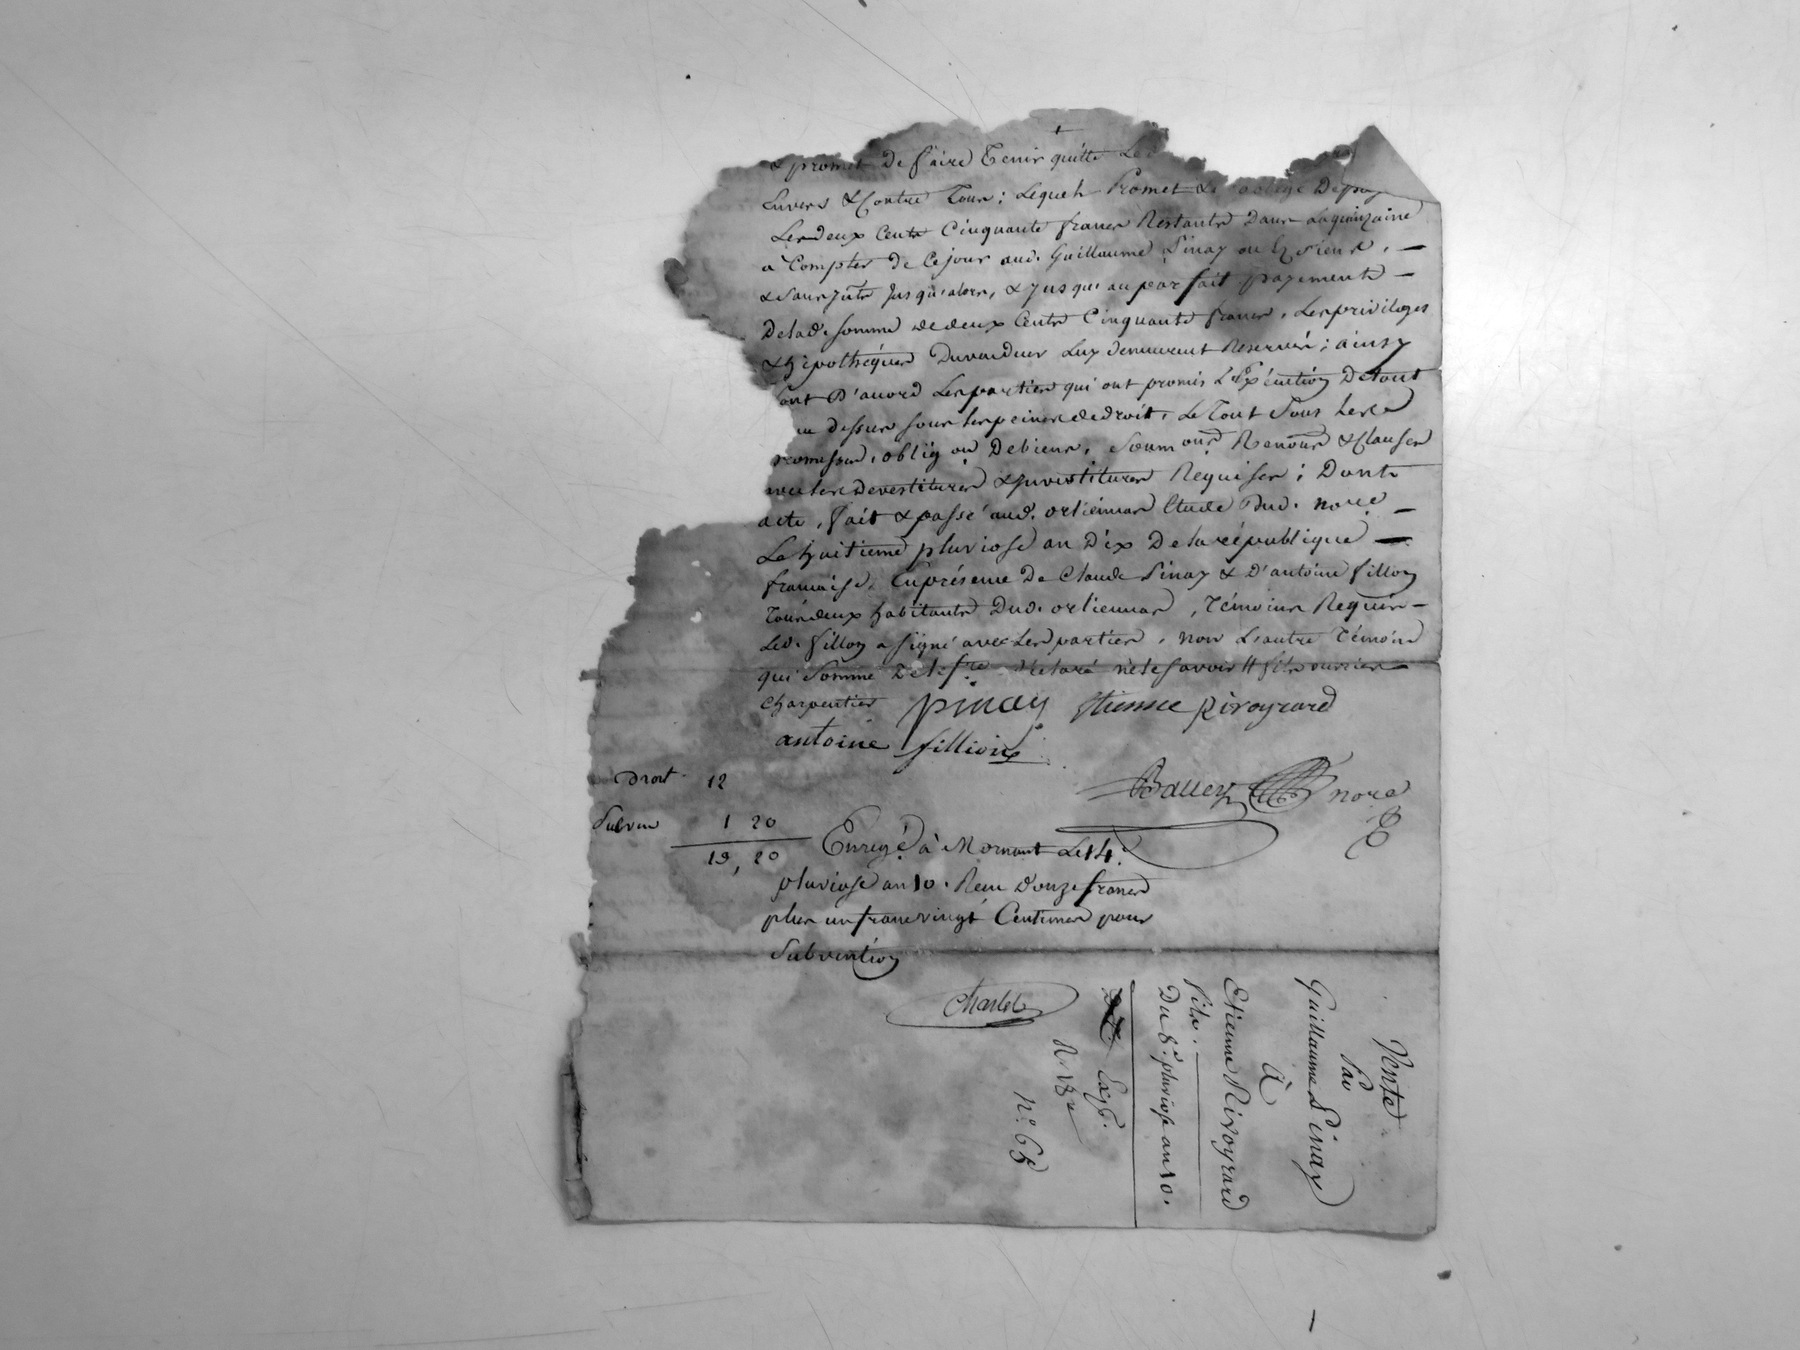 & promet de faire tenir quitte Led
Envers & Contre Tous ; Lequel Promet & s'oblige De pay
Les deux Cents Cinquante francs Restants Dans La quinzaine
a Compter de Ce jour aud. Guillaume Pinay ou Ez siens , —
& Sans jnts Jusqu'alors, & jusqu'au parfait payement —
De lad. somme de deux Cents Cinquante francs , Les privileges
& hipothéques Du vendeur Luy demeurent Reservés ; ainsy
sont D'accord Les parties qui ont promis L'Exécution De tout
ce dessus sous les peines de droit , Le Tout Sous les
promesses, oblig.on De biens, Soum.ons Renon.s & Clauses
devestitures & jnvestitures Requises ; Dont
acte , fait & passé aud. orlienas Etude Dud. nore. —
Le huitieme pluviose an Dix De la république —
française, En présence De Claude Pinay & D'antoine fillon
Tous deux habitants Dud. orliennas , Témoins Requis —
Led. fillon a signé avec Les parties , non L'autre Témoin
qui Sommé De le f.re a déclaré ne le savoir // fils ouvrier
Charpentier pinay Etienne Rivoyrard
antoine fillion
Droit 12
Subven 1 20
13, 20
nore
Enregé à Mornant Le 14.
pluviose an 10. Reçu Douze francs
plus un franc vingt Centimes pour
Subvention
Charlet
Vente
Par
Guillaume Pinay
à
Etienne Rivoyrard
fils .
Du 8. pluviose an 10.
Exp.
n.o 65